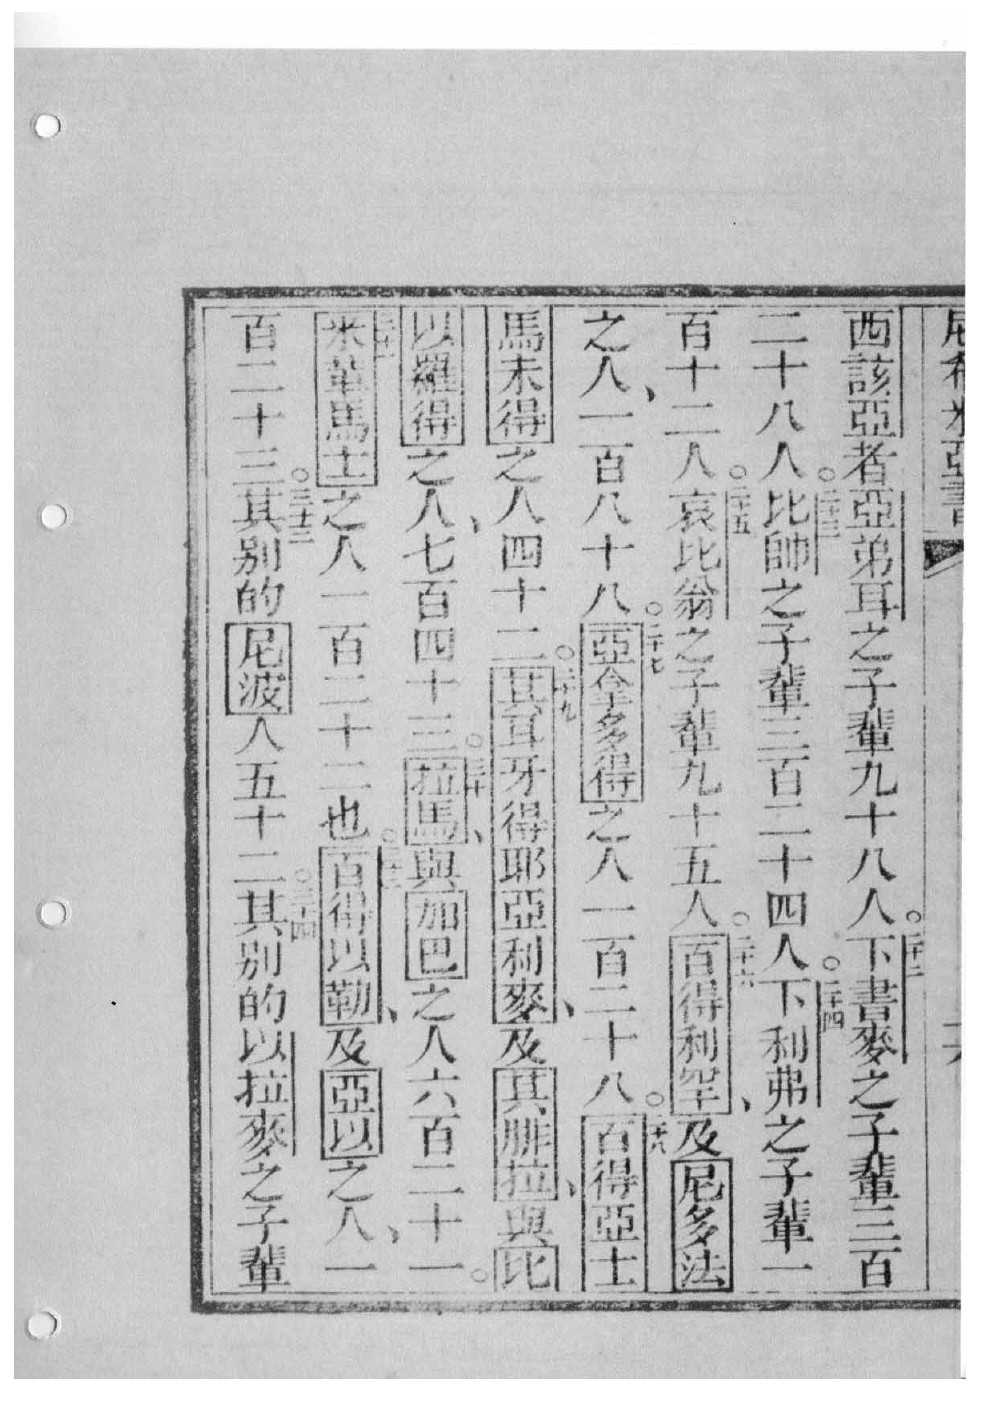 尼希米亞書
西該亞者亞弟耳之子輩九十八人○二十二下書麥之子輩三百
二十八人○二十三比帥之子輩三百二十四人○二十四下利弗之子輩一
百十二人○二十五哀比翁之子輩九十五人○二十六百得利空、及尼多法
之人、一百八十八○二十七亞拿多得之人一百二十八○二十八百得亞士
馬未得之人四十二○二十九其耳牙得耶亞利麥、及其腓拉、與比
以羅得之人、七百四十三○三十拉馬、與加巴之人六百二十一○
三十一米革馬士之人一百二十二也○三十二百得以勒、及亞以之人、一
百二十三○三十三其別的尼波人五十二○三十四其別的以拉麥之子輩